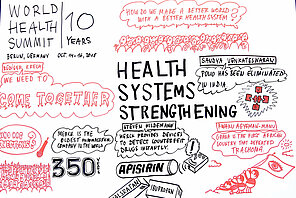 WORLD
HEALTH
SUMMIT
10
YEARS
BERLIN, GERMANY
OCT.
HOW DO WE MADE A BETTER WORLD
WITH A BETTER HEALTH SYSTEM?
WE NEED TO
COME TOGETHER
HEALTH
SYSTEMS
STRENGTHENING
POLIO HAS BEEN ELIMINATED
IN INDIA
MERCK IS THE
OLDEST
COMPANY IN THE WORLD
350
STEVEN HILDEMANN
MERCK PROVIDES DEVICES
TO DETECT COUNTERFEIT
DRUGS INSTANTLY.
APISIRIN
IBUPROFEN
GHANA IS THE FIRST AFRICAN
COUNTRY THAT DEFEATED
TRACHOMA